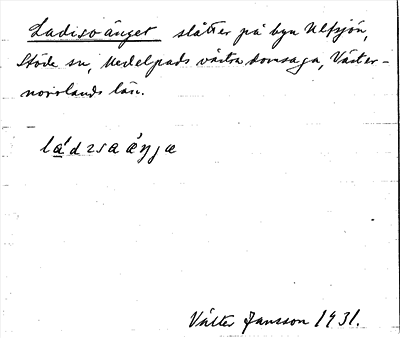 Ladisoänget slåtter på byn Ulfsjön,
Stöde sn, Medelpads västra domsaga, Väster-
norrlands län.
ládzsaäŋjæ
Valter Jansson 1931.